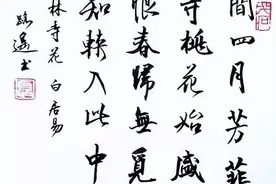 間四月芳菲
寺桃花始盛
恨春歸無覓
知轉入此中
林寺花 白居易
书